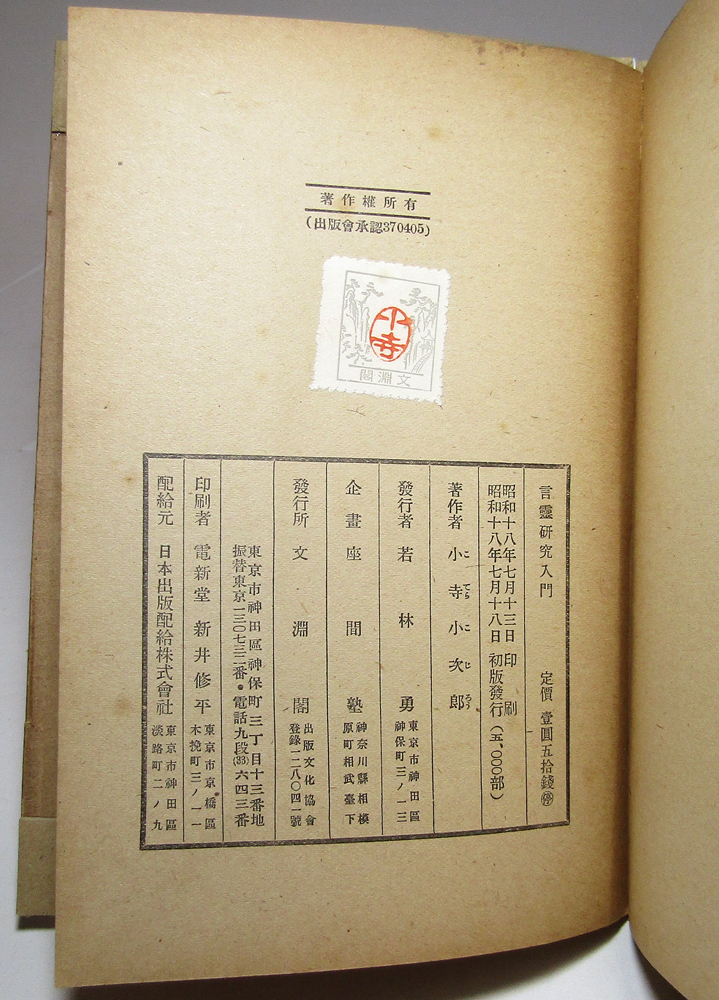 著作權所有
(出版會承認370405)
小寺
文淵閣
言靈研究入門 定價 壹圓五拾錢 ㊞
昭和十八年七月十三日 印刷
昭和十八年七月十八日 初版發行(五、〇〇〇部)
著作者 小寺小次郎
こ でら こ じ らう
發行者 若林勇
東京市神田區
神保町三ノ一三
企畫 座間塾
神奈川縣相模
原町相武臺下
發行所 文淵閣
出版文化協會
登錄一二八〇四一號
東京市神田區神保町三丁目十三番地
振替東京一三〇七三二番・電話九段(33)六四三番
印刷者 電新堂 新井修平
東京市京橋區
木挽町三ノ一一
配給元 日本出版配給株式會社
東京市神田區
淡路町二ノ九